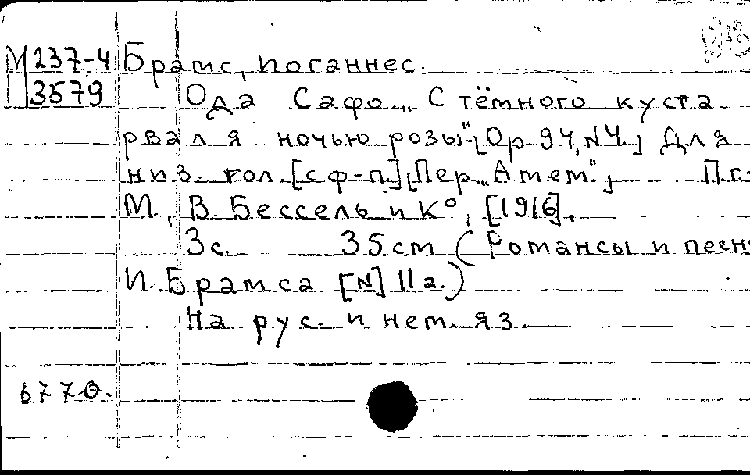 М 237-4 Брамс, Иоганнес.
3579 Ода Сафо. „С тёмного куста
рвал я ночью розы" [Op. 94, N 4.] Для
низ. гол. [с ф-п.] [Пер. „Атет".] Пг.
М., В. Бессель и К°, [1916].
3 с. 35 см (Романсы и песн
И. Брамса [N] 11а.)
На рус. и нем. яз.
6770.